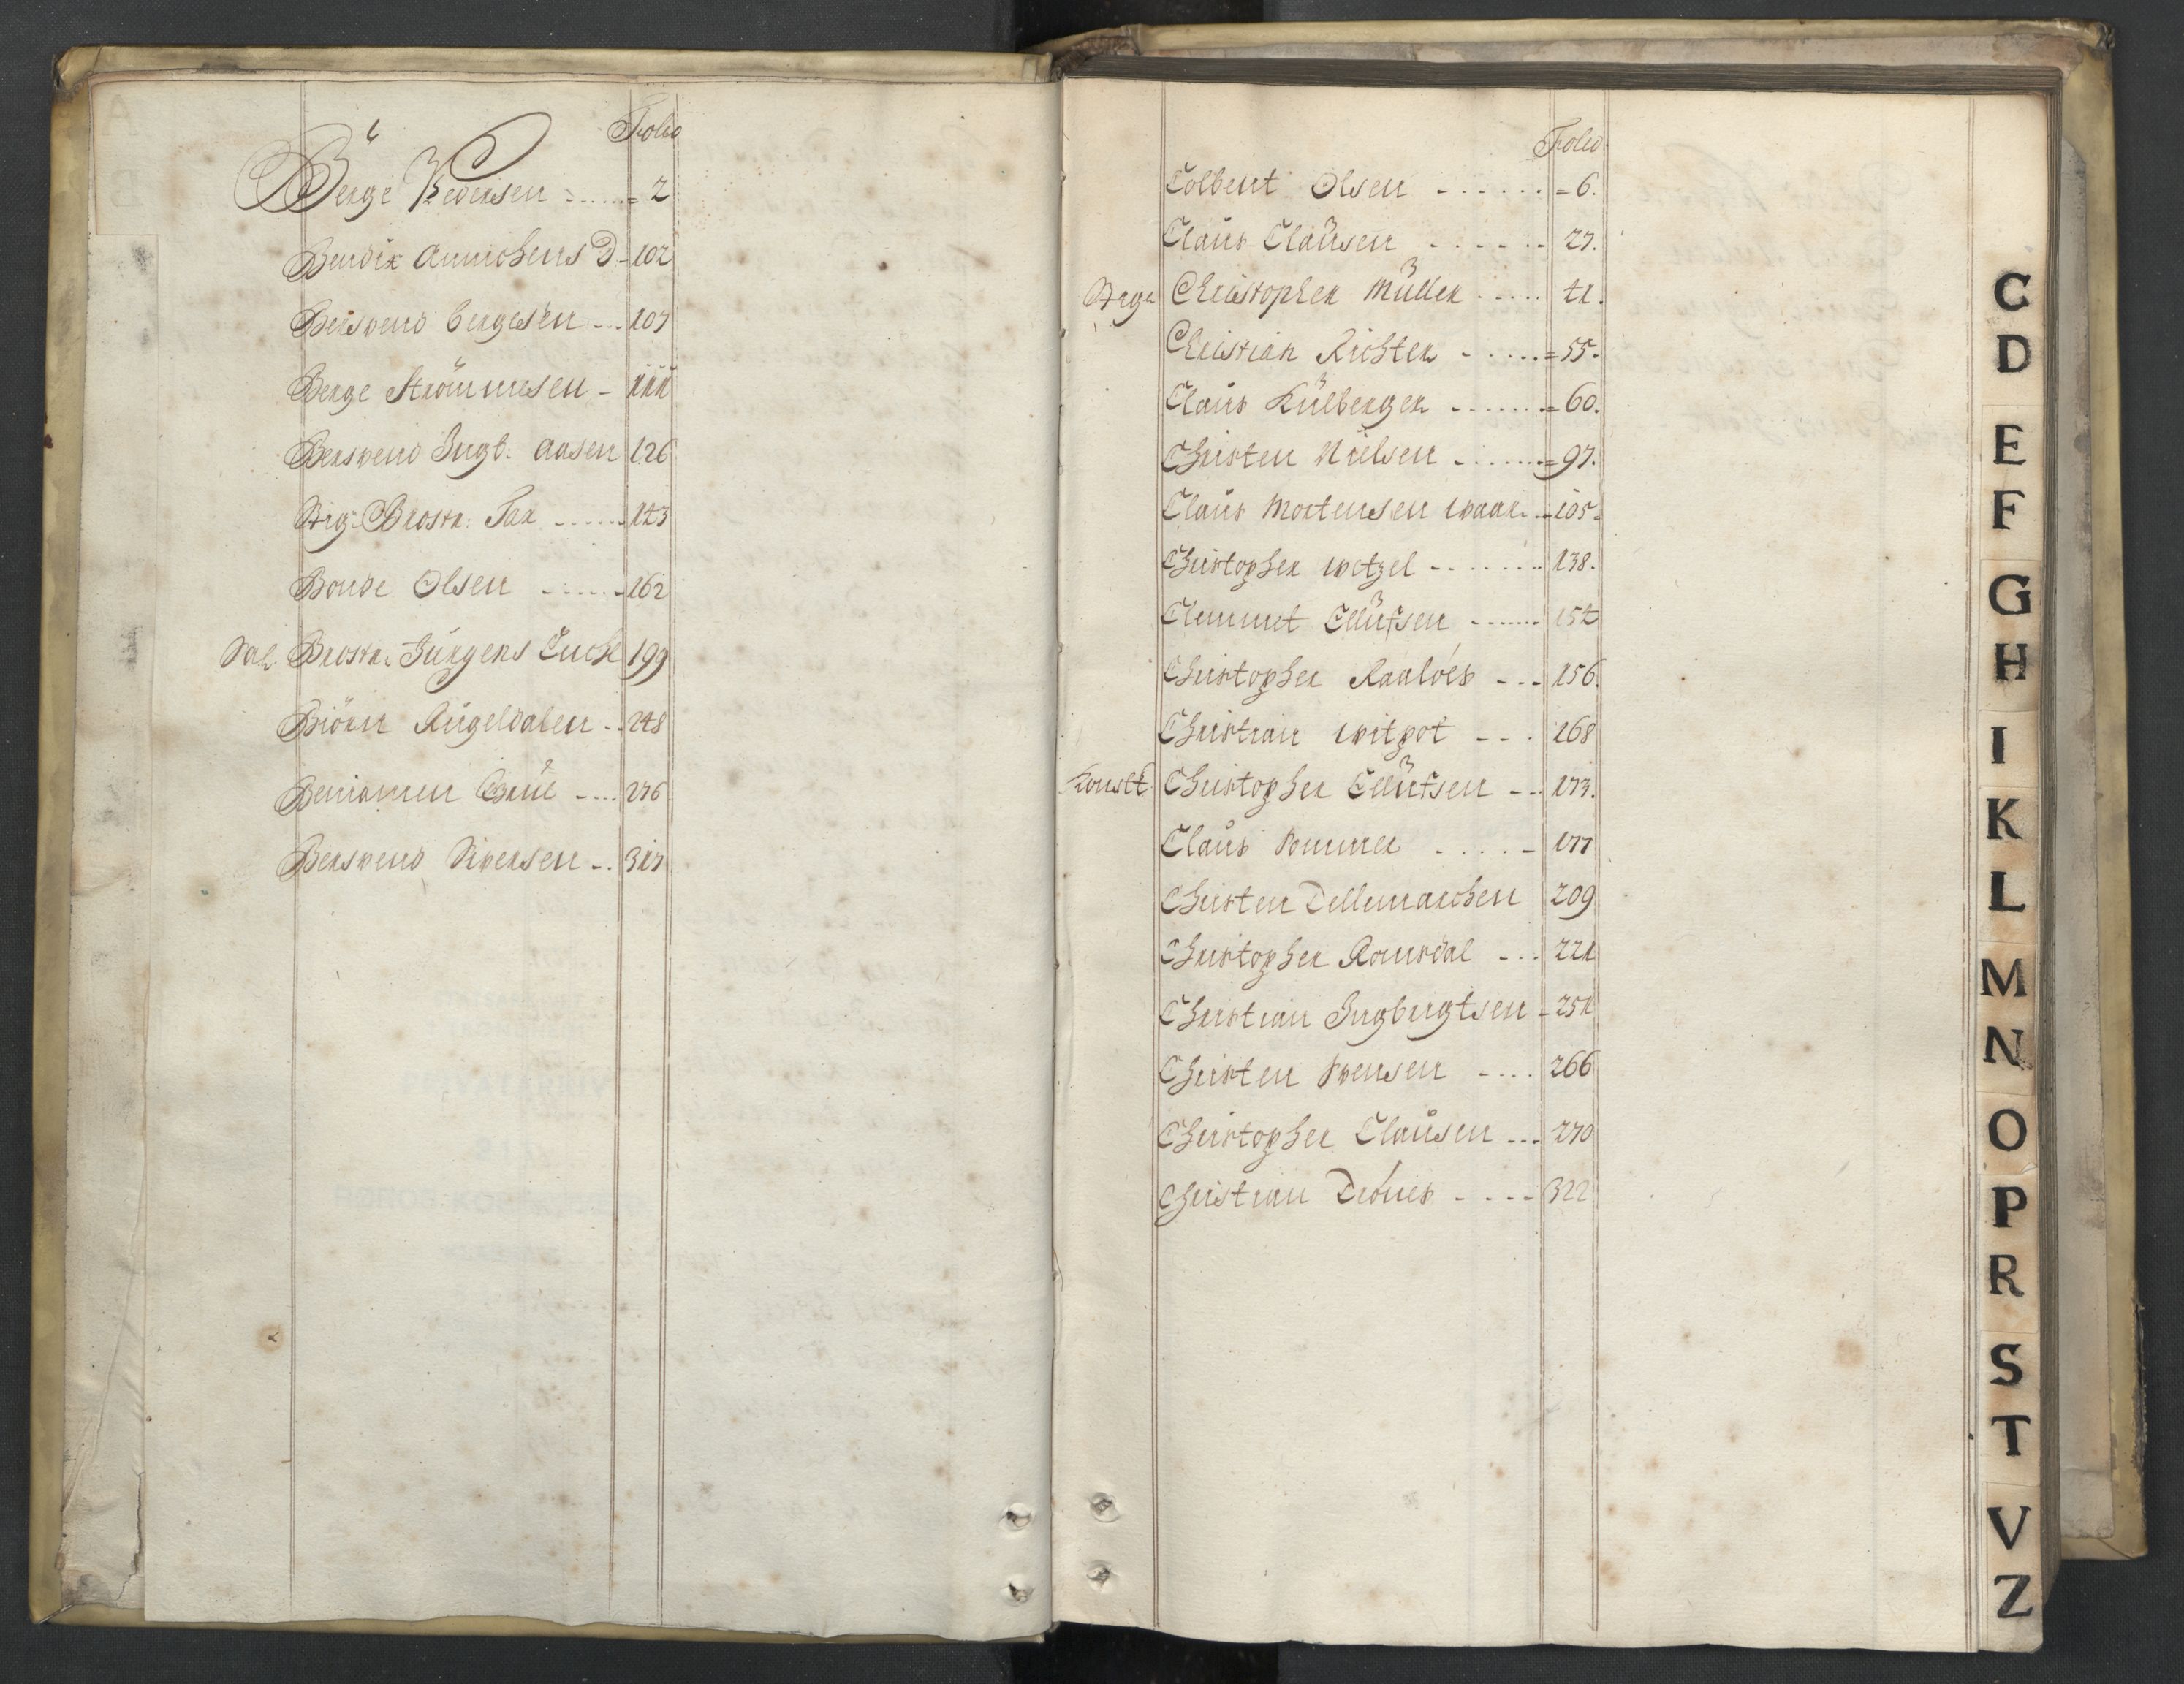 Folio
Berge Pedersen - 2
Bendix Annichens D - 102
Berswend Bergesen - 107
Berge Strömmesen - 111
Berswend Ingb: Aasen 126
Stig: Brostr: Fax - 143
Bonde Olsen - 162
Sal. Brostr: Jürgens Enck 199
Biörn Rügeldalen - 248
Beniamen - 276
Berswend Siversen - 317
Folio
Colbent Olsen - 6.
Claus Clausen - 27.
Stige Christopher Müller - 41.
Christian Richter - 55.
Claus Külberger - 60.
Christen Nielsen - 97.
Claus Mortensen Waar - 105.
Christopher Wetzel - 138.
Clemmet Ellüfsen - 154
Christopher Raaloes - 156.
Christian Witpot - 168
Konstt. Christopher Ellüfsen - 173.
Claus - 177
Christen Dellemarchen 209
Christopher Romsdal - 221
Christian Ingbrigtsen - 251
Christen Svensen - 266
Christopher Clausen - 270
Christian Drönes - 322
C
D
E
F
G
H
I
K
L
M
N
O
P
R
S
T
V
Z